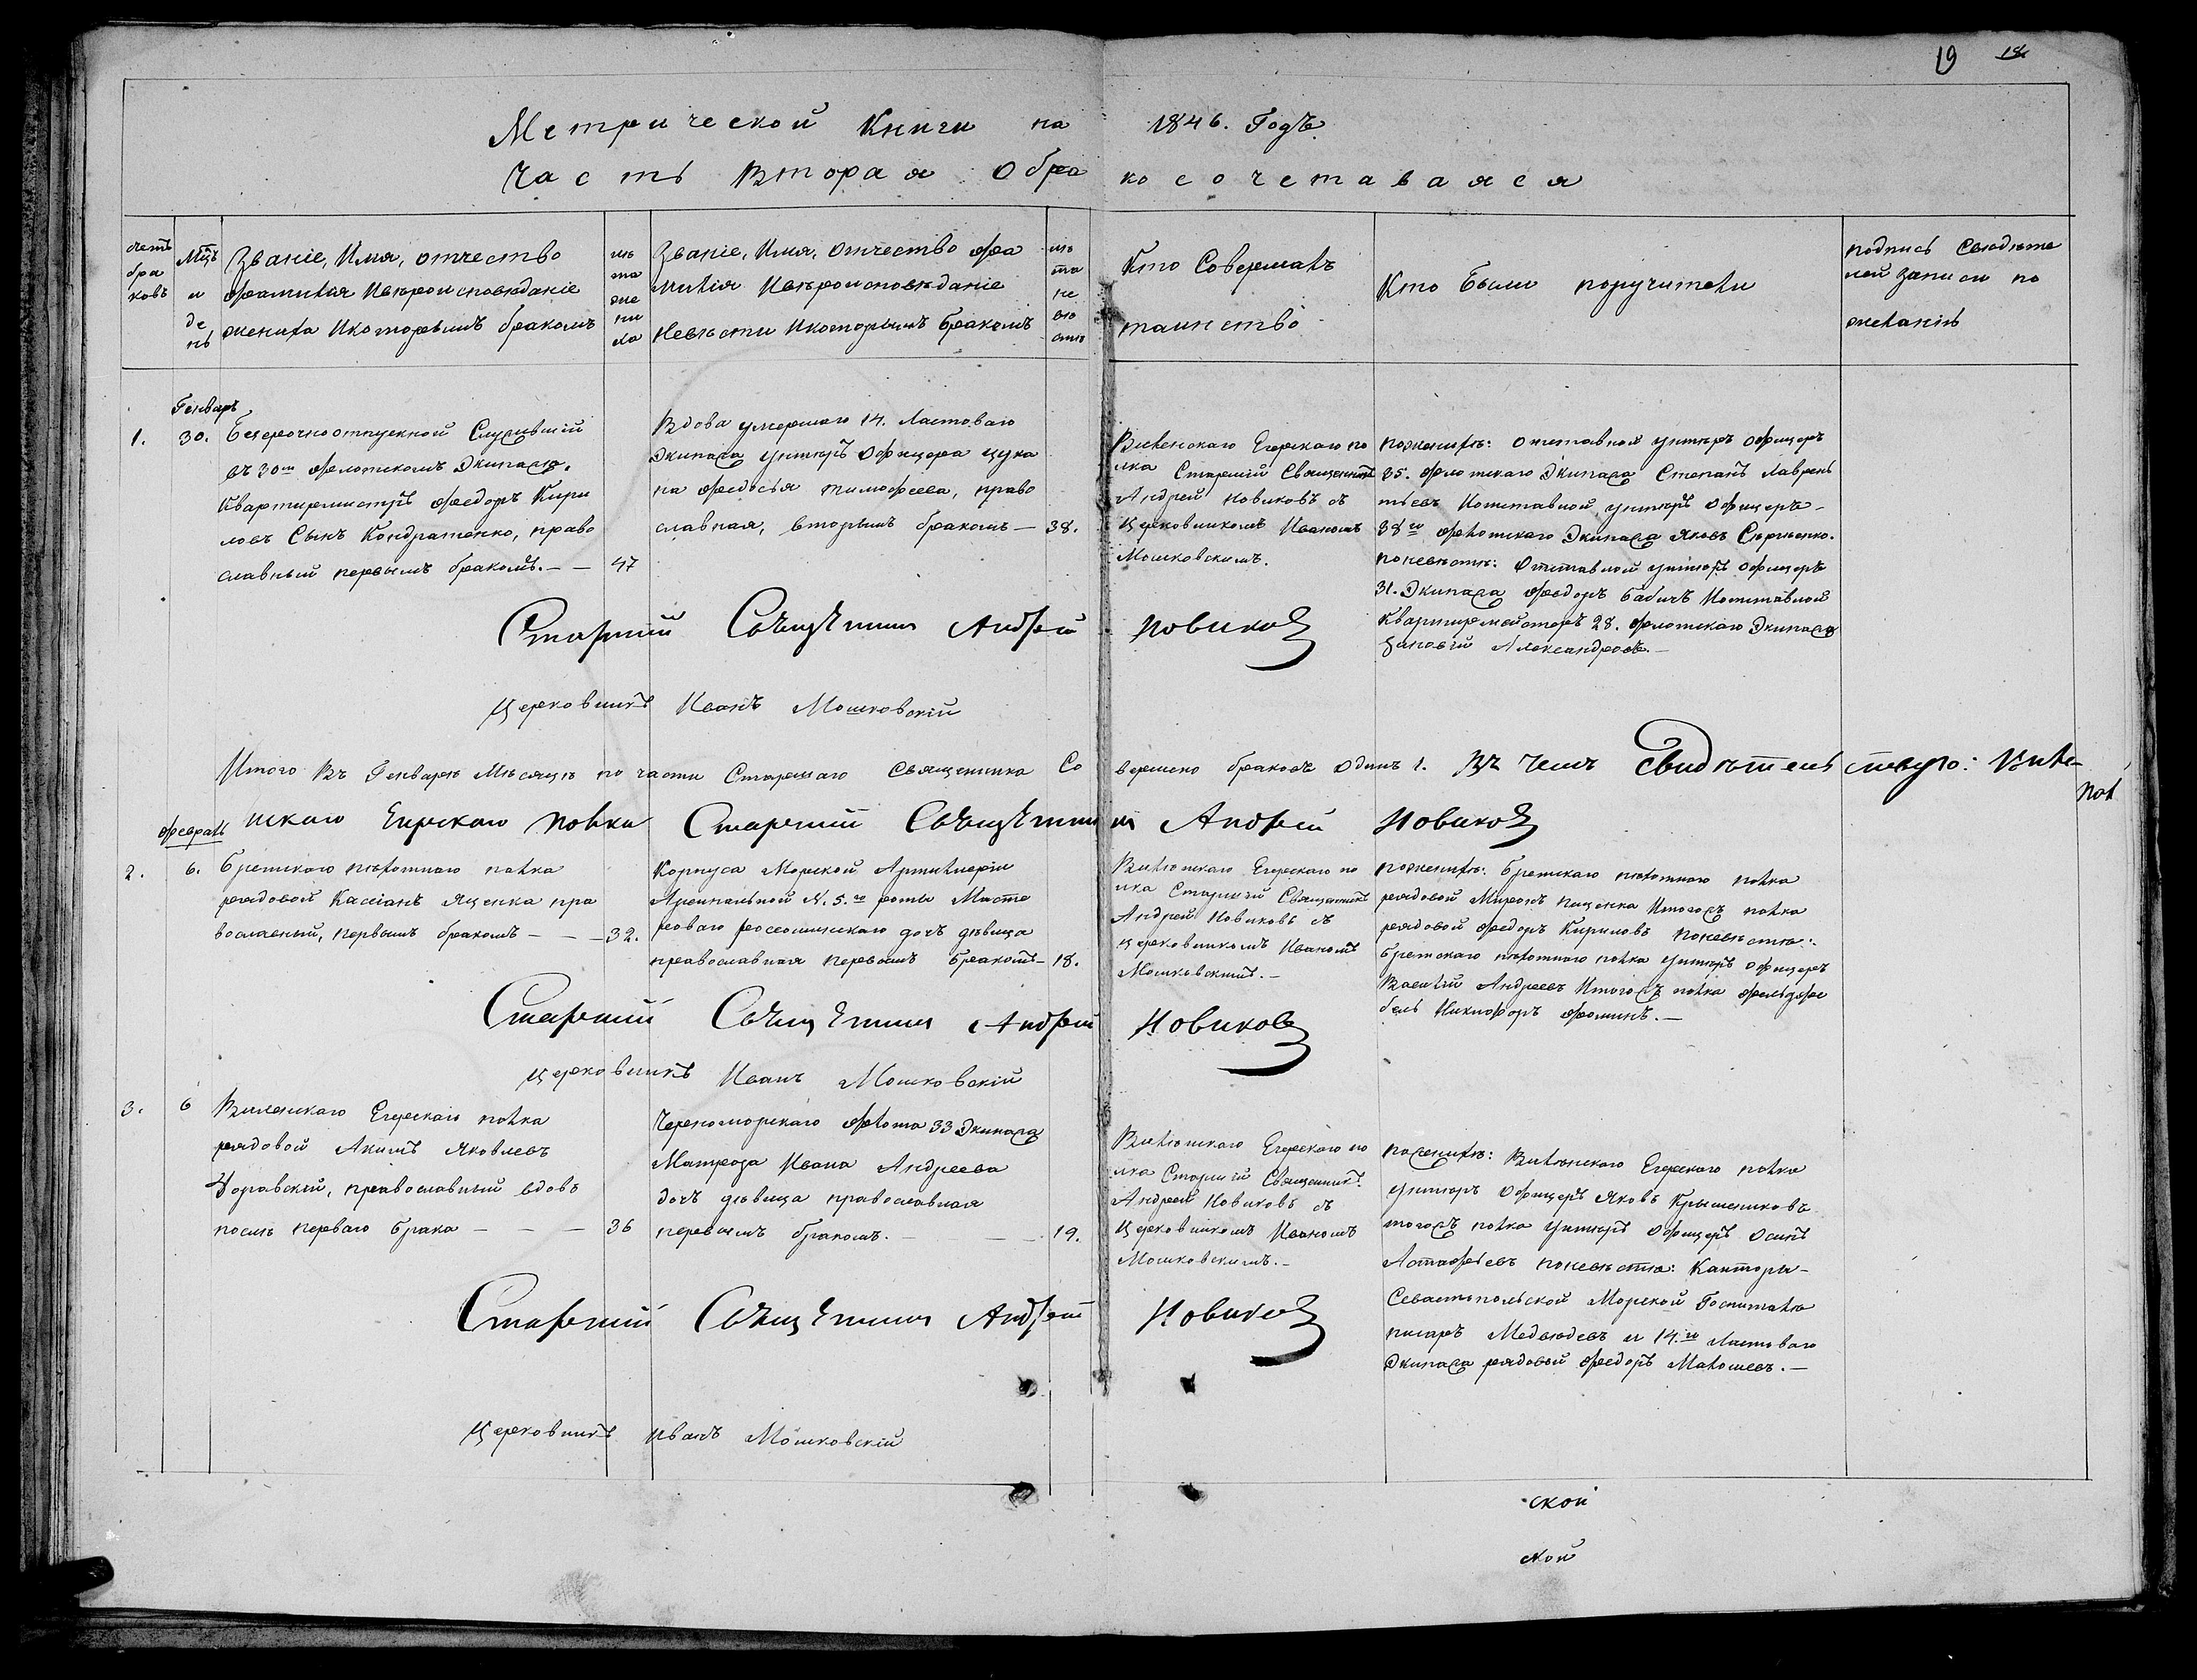 19 18
Метрической Книги на 1846. Годъ.
Часть Вторая О бракосочетаваяся
счетъ браковъ
Мцъ и день
Званіе, Имя, отчество фамилія Ивѣроисповѣданіе жениха Икоторымъ бракомъ
лѣта жениха
Званіе, Имя, отчество фамилія Ивѣроисповѣданіе Невѣсты Икоторымъ бракомъ
лѣта невѣсты
Кто Совершалъ таинство
Кто Были поручители
подпись Свидѣтелей записи по желанію
Генварь
1. 30. Безсрочноотпускной Служившій
въ 30м флотскомъ Экипаже,
Квартирмистръ Федоръ Кири
ловъ Сынъ Кондратенко, право
славный первымъ бракомъ. — — 47
Вдова умершаго 14. Ластоваго
Экипажа унтеръ Офицера Цука
на Федосья Тимофеева, право
славная, вторымъ бракомъ — 38.
Виленскаго Егерскаго по
лка Старшій Священникъ
Андрей Новиковъ съ
Церковникомъ Иваномъ
Мошковскимъ.
Поженихѣ: отставной унтеръ офицеръ
35. флотскаго Экипажа Степанъ Лаврень
тьевъ Иотставной унтеръ Офицеръ —
38го флотскаго Экипажа Яковъ Сергѣенко.
Поневѣстѣ: Отставной унтеръ офицеръ
31. Экипажа Федоръ Бабичъ Иотставной
Квартирмейстеръ 28. флотскаго Экипажа
Зиновій Александровъ. —
Старшій Священникъ Андрей Новиковъ
Церковникъ Иванъ Мошковскій
Итого Въ Генварѣ Мѣсяцѣ по части Старшаго Священника Совершено браковъ Одинъ 1. Въ чемъ Свидѣтельствую: Виле-
нскаго Егерскаго Полка Старшій Священникъ Андрей Новиковъ
Пол
Февраль
2. 6. Брестскаго пѣхотнаго полка
рядовой Касіанъ Яценка пра
вославный, первымъ бракомъ — — — 32.
Корпуса Морской Артилеріи
Арсинальной N. 5.го роты Масте
роваго дочь дѣвица
православная первымъ бракомъ — 18.
Виленскаго Егерскаго по
лка Старшій Священникъ
Андрей Новиковъ съ
Церковникомъ Иваномъ
Мошковскимъ. —
Поженихѣ: Брестскаго пѣхотнаго полка
рядовой Миронъ Пищенка Итогожъ полка
рядовой Федоръ Кириловъ Поневѣстѣ:
Брестскаго пѣхотнаго полка унтеръ Офицеръ
Василій Андреевъ Итогожъ полка фельдфе
бель Никифоръ Фоминъ. —
Старшій Священникъ Андрей Новиковъ
Церковникъ Иванъ Мошковскій
3. 6 Виленскаго Егерскаго полка
рядовой Акимъ Яковлевъ
православный вдовъ
послѣ перваго брака — — — 36
Черноморскаго Флота 33 Экипажа
Матроза Ивана Андреева
дочь дѣвица православная
первымъ бракомъ. — — 19.
Виленскаго Егерскаго по
лка Старшій Священникъ
Андрей Новиковъ съ
Церковникомъ Иваномъ
Мошковскимъ. —
Поженихѣ: Виленскаго Егерскаго полка
унтеръ Офицеръ Яковъ Крышениковъ
тогожъ полка унтеръ Офицеръ Осипъ
Астафьевъ поневѣстѣ: Канторы —
Севастопольской Морской Госпиталѣ
писарь Медвѣдевъ и 14.го Ластоваго
Экипажа рядовой Федоръ Матюшевъ. —
Старшій Священникъ Андрей Новиковъ
Церковникъ Иванъ Мошковскій
ской
ской